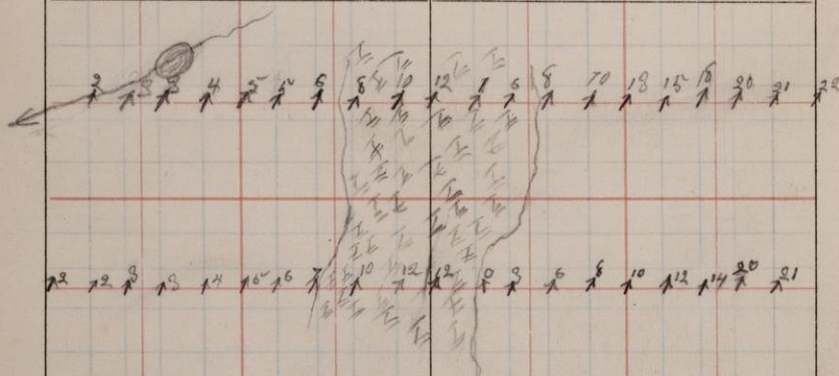 2 3 3 4 5 5 6 8 10 12 7 6 8 10 18 15 18 20 21 22
2 2 3 3 4 5 6 7 10 12 12 0 3 6 8 10 12 14 20 21